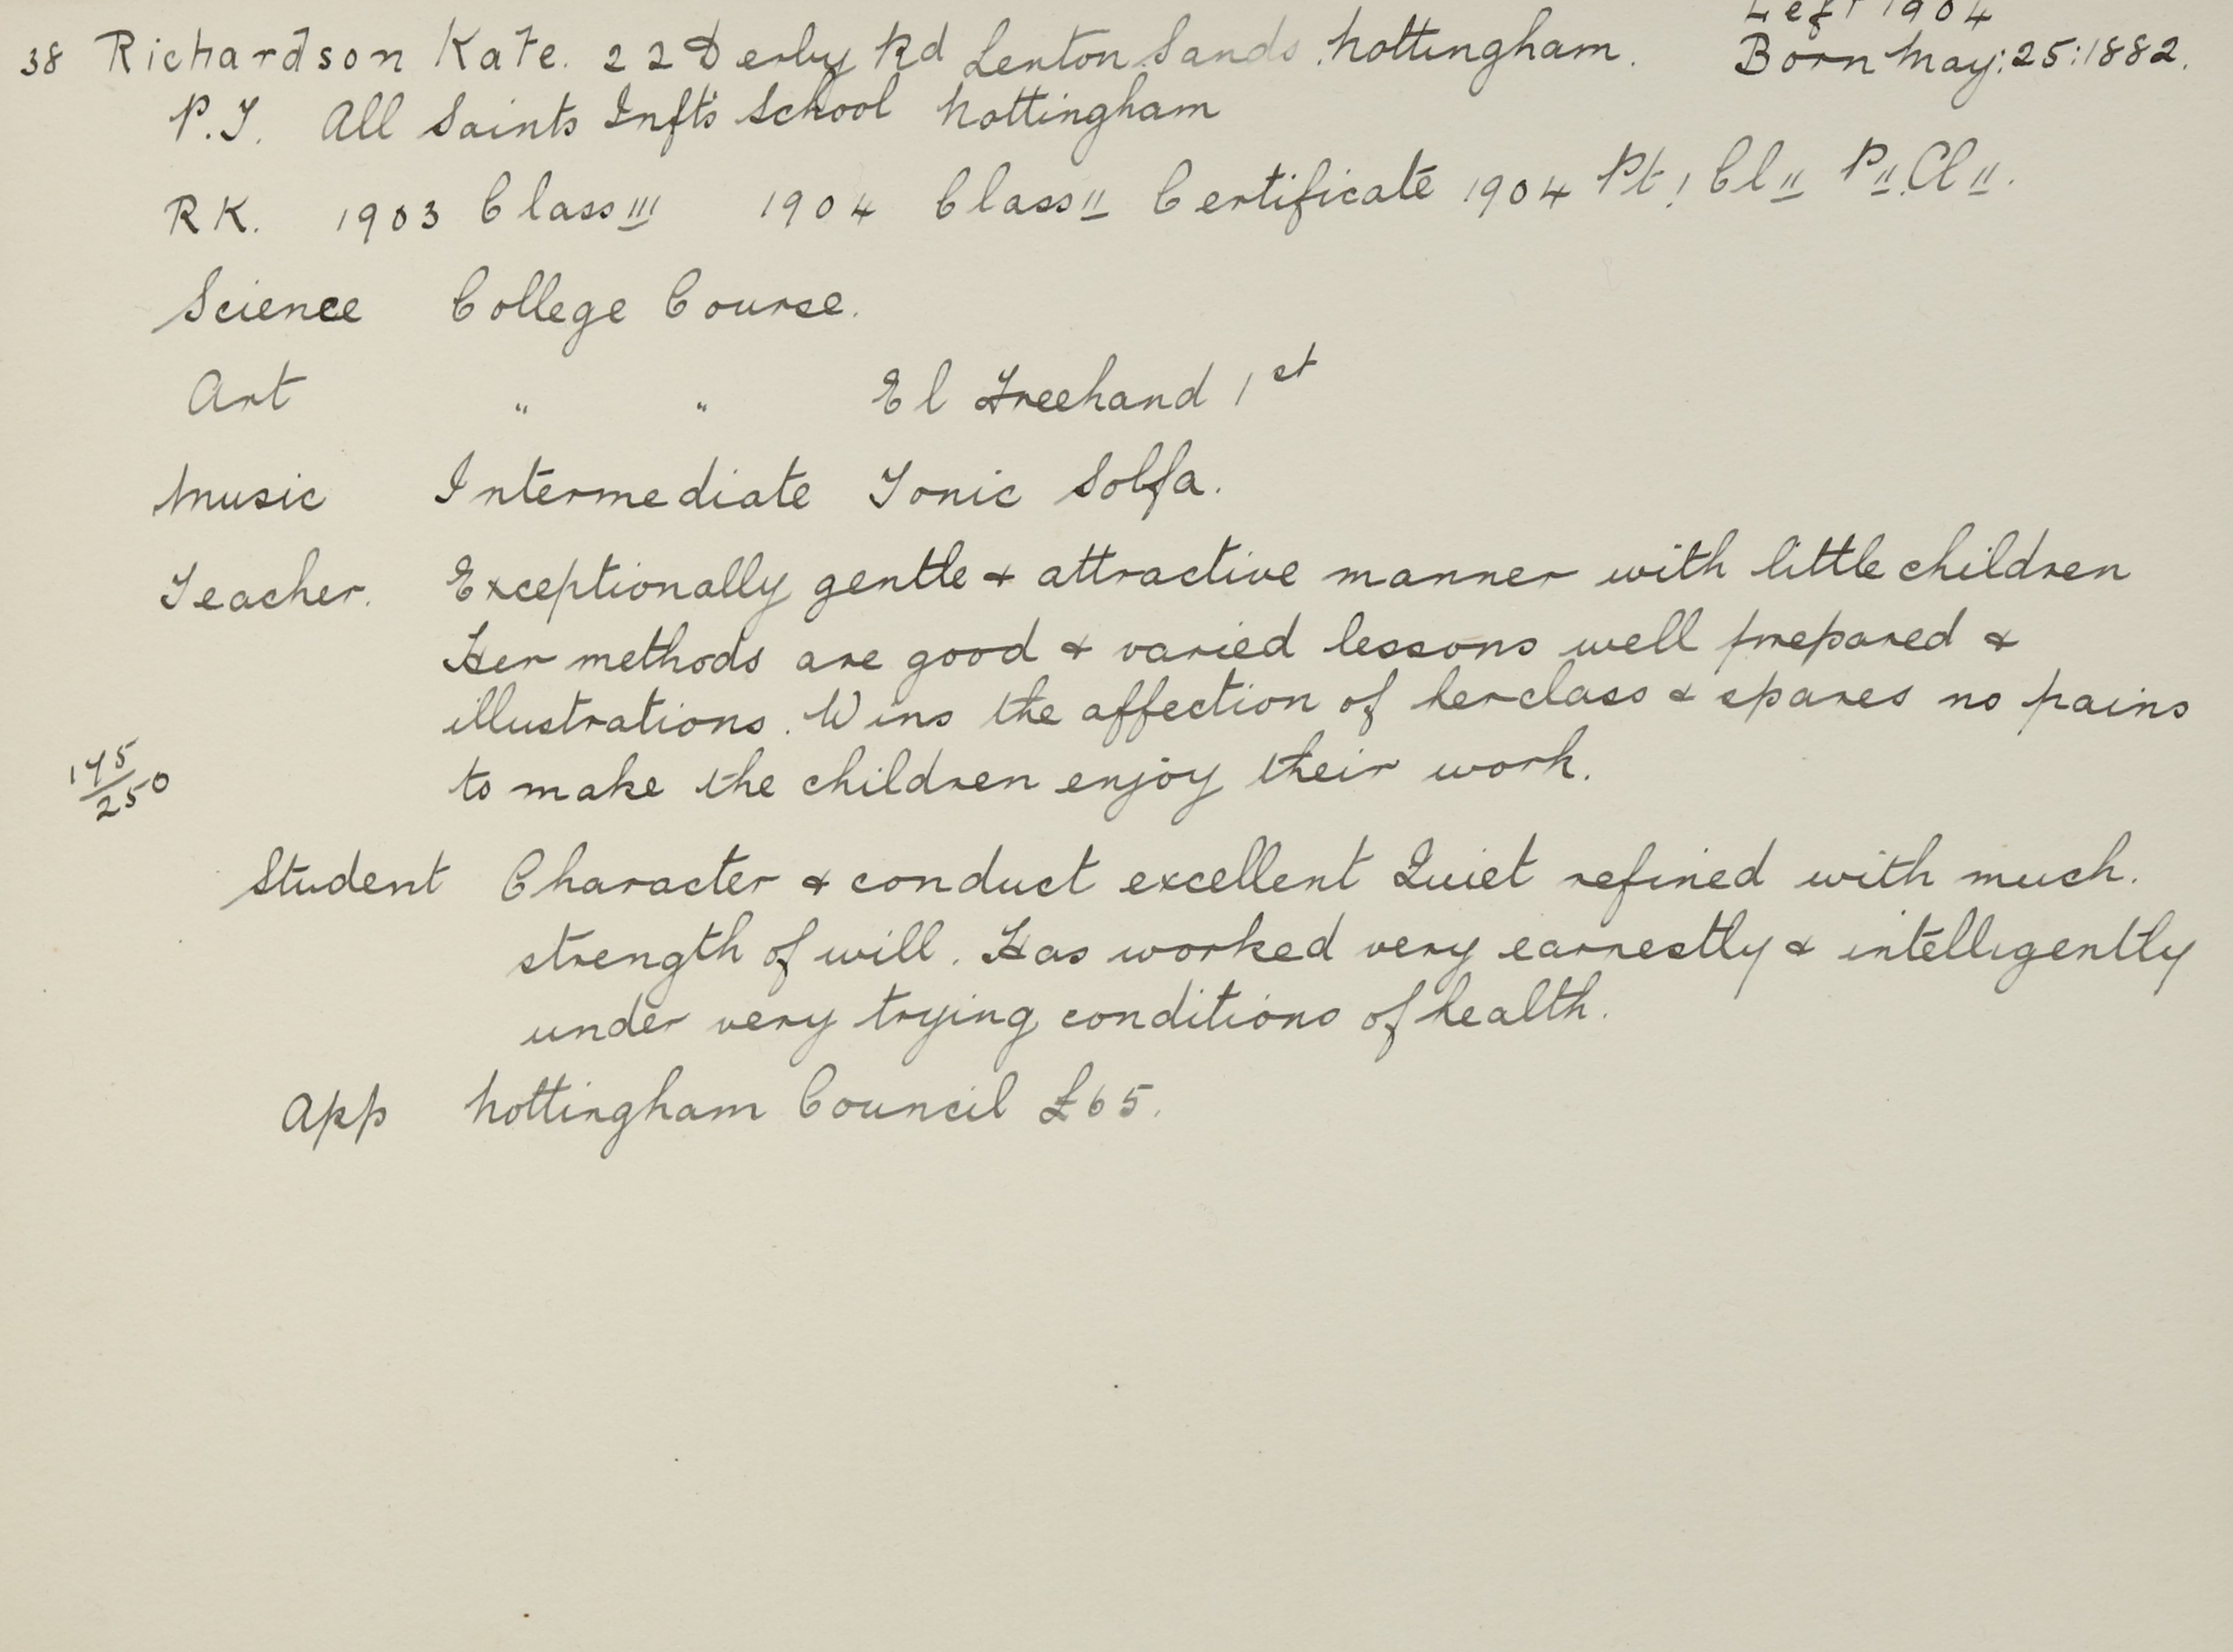 Left 1904
38 Richardson Kate. 22 Derby Rd Lenton Sands Nottingham. Born May: 25: 1882.
P.T. All Saints Infts School Nottingham
R K. 1903 Class III 1904 Class II Certificate 1904 Pt I Cl II P II Cl II.
Science College Course.
Art " " El Freehand 1st
Music Intermediate Tonic Solfa.
Teacher. Exceptionally gentle & attractive manner with little children
Her methods are good & varied lessons well prepared &
illustrations. Wins the affection of her class & spares no pains
to make the children enjoy their work.
175/250
Student Character & conduct excellent Quiet refined with much.
strength of will. Has worked very earnestly & intelligently
under very trying conditions of health.
App Nottingham Council £65.